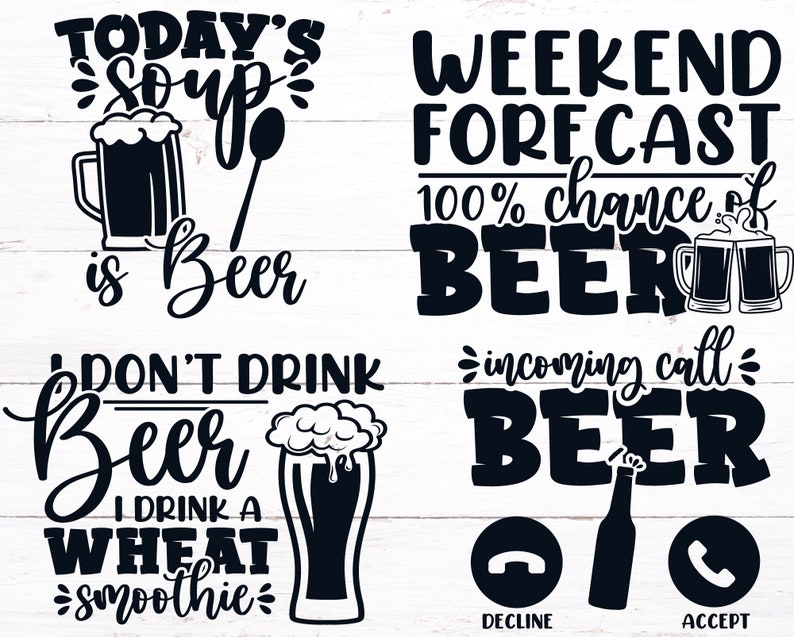 TODAY'S
soup
is Beer
WEEKEND
FORECAST
100% chance of
BEER
I DON'T DRINK
Beer
I DRINK A
WHEAT
smoothie
incoming call
BEER
DECLINE
ACCEPT